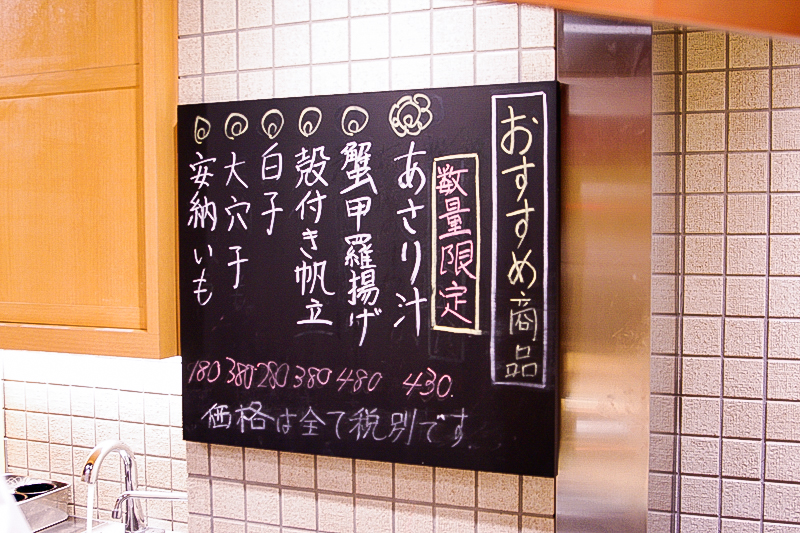 おすすめ商品
数量限定
あさり汁
蟹甲羅揚げ
殻付き帆立
白子
大穴子
安納いも
180 380 280 380 480 430.
価格は全て税別です